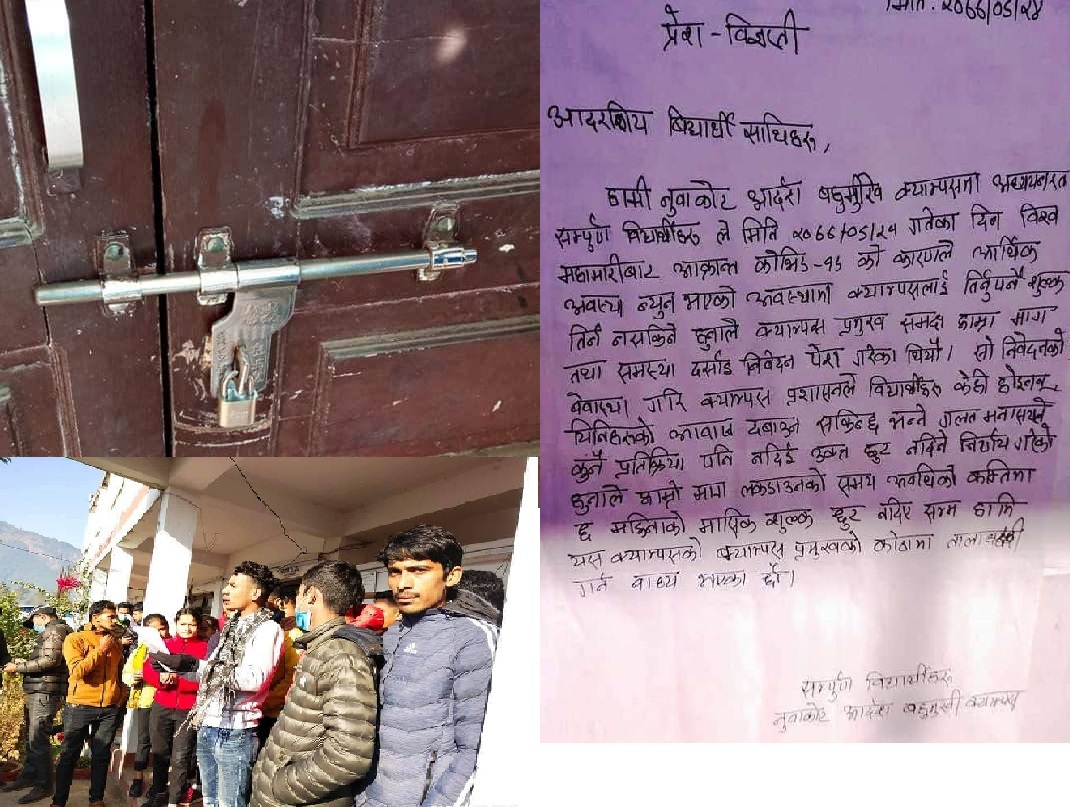 मिति. २०७७/०८/२४
प्रेश - विज्ञप्ती
आदरणिय बिद्यार्थी साथिहरु,
हामी नुवाकोट आर्दश बहुमुखि क्याम्पसमा अध्ययनरत
सम्पुर्ण बिद्यार्थीहरु ले मिति गतेका दिन विश्व
महामारीबाट आक्रान्त कोभिड-१९ को कारणले आर्थिक
अवस्था न्युन भएको अवस्थामा क्याम्पसलाई तिर्नुपर्ने शुल्क
तिर्न नसकिने हुनाले क्याम्पस प्रमुख समक्ष हाम्रा माग
तथा समस्या दर्साइ निवेदन पेश गरेका थियौ। सो निवेदनको
बेवास्था गरि क्याम्पस प्रशासनले विद्यार्थीहरु केही होइनन्
यिनिहरुको आवाज दबाउन सकिन्छ भन्ने गलत मनासयले
कुनै प्रतिक्रिया पनि नदिई छुट नदिने निर्णय गरेको
हुनाले हाम्रो माग लकडाउनको समय अवधिको कम्तिमा
६ महिनाको मासिक शुल्क छुट नदिए सम्म हामि
यस क्याम्पसको क्याम्पस प्रमुखको कोठामा तालाबन्दी
गर्न बाध्य भएका छौं।
सम्पुर्ण विद्यार्थीहरु
नुवाकोट आर्दश बहुमुखी क्याम्पस